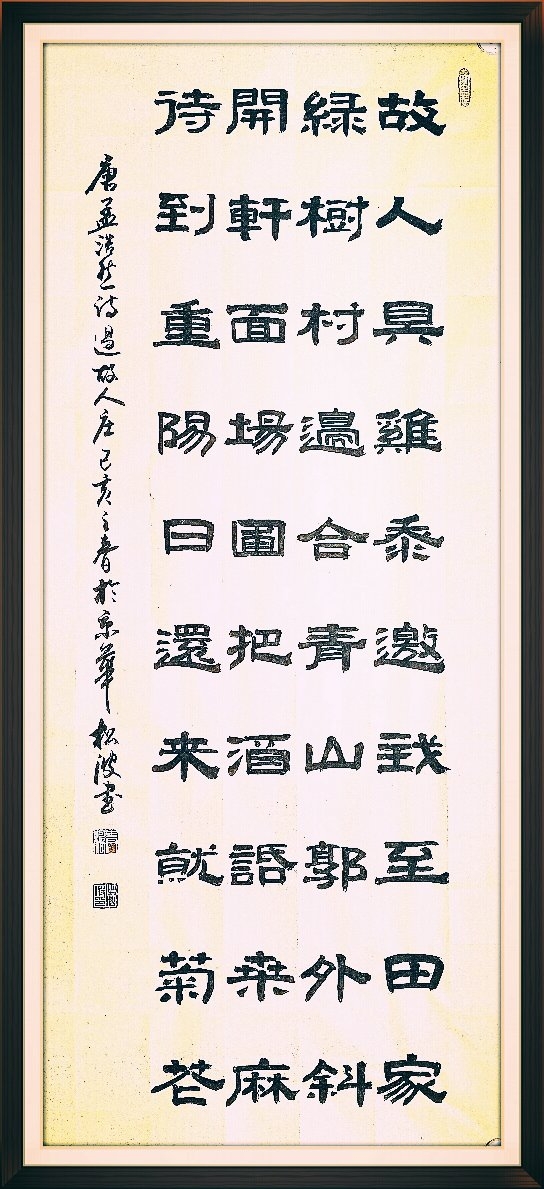 故人具雞黍邀我至田家
綠樹村邊合青山郭外斜
開軒面場圃把酒話桒麻
待到重陽日還来就菊花
唐孟浩然诗過故人庄己亥之春於京華松波書